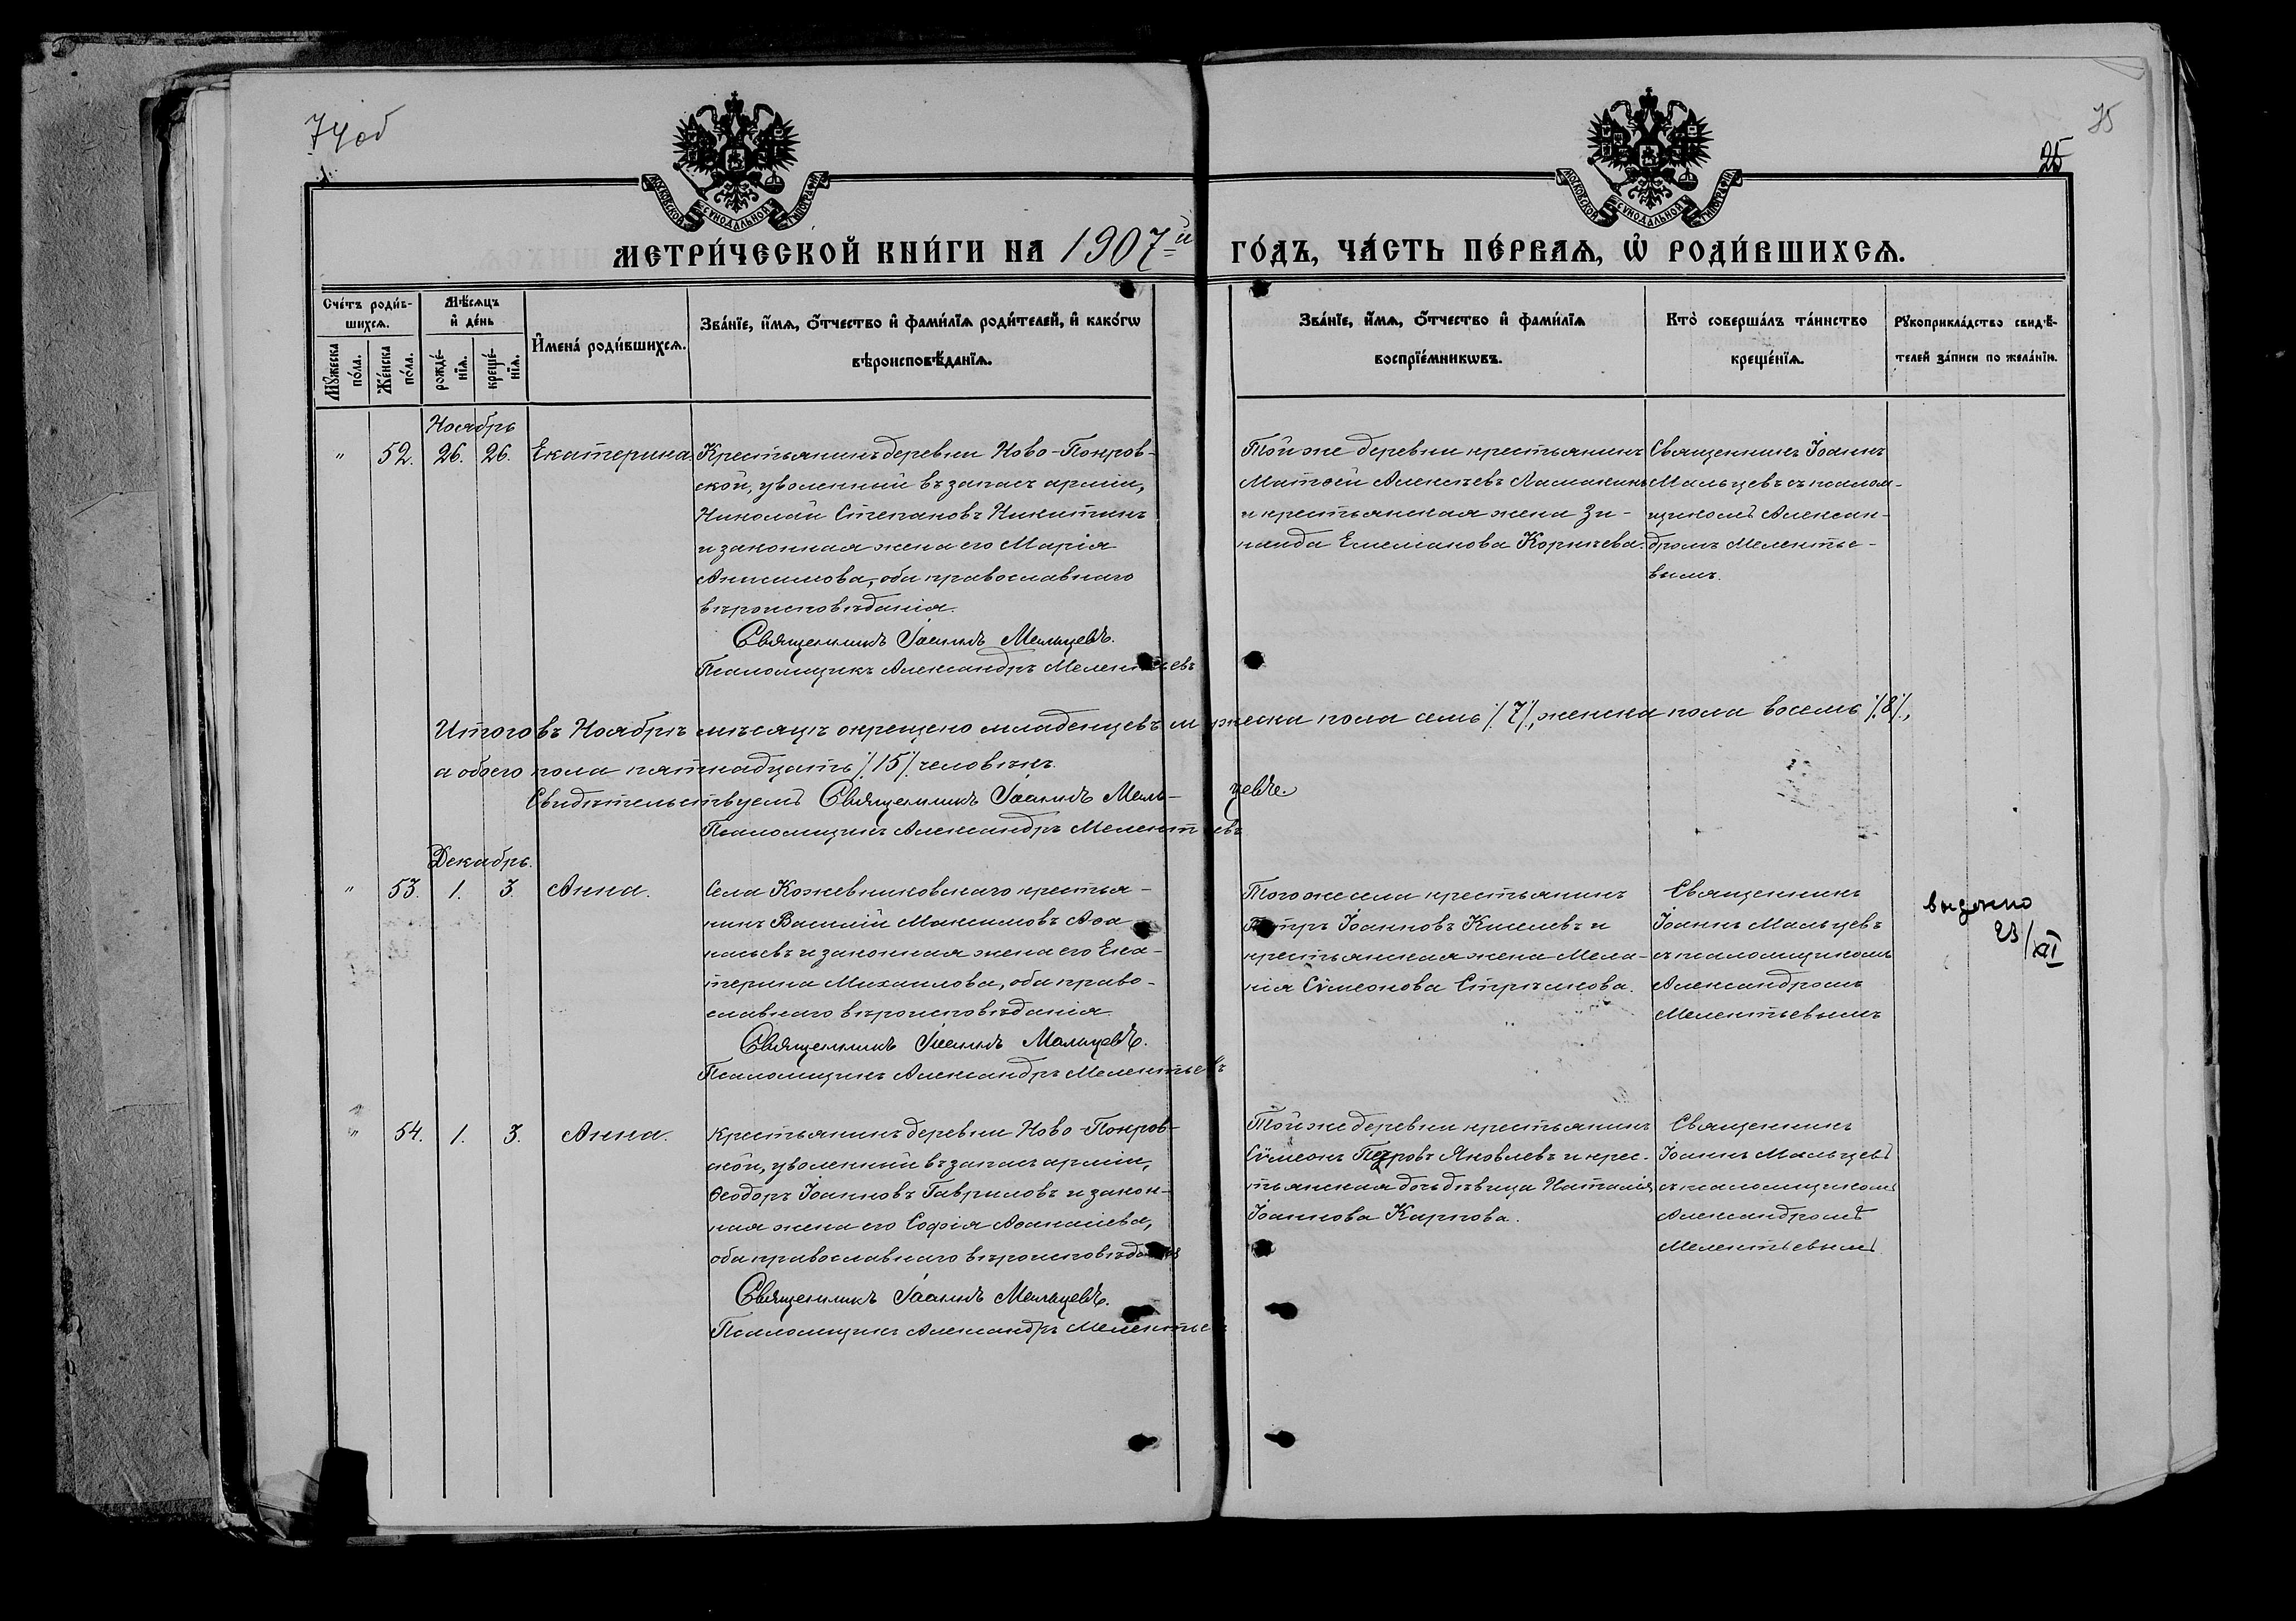 74 об
75
25
МОСКОВСКОЙ СѴНОДАЛЬНОЙ ТИПОГРАФІИ
МОСКОВСКОЙ СѴНОДАЛЬНОЙ ТИПОГРАФІИ
МЕТРИ́ЧЕСКОЙ КНИ́ГИ НА 1907й ГО́ДЪ, ЧА́СТЬ ПЕ́РВАѦ, Ѡ҆ РОДИ́ВШИХСѦ.
Сче́тъ роди́в-
шихсѧ.
Мꙋ́жеска
по́ла.
Же́нска
по́ла.
Мѣ́сѧцъ
и҆ де́нь
рожде́-
нїѧ.
креще́-
нїѧ.
И҆мена̀ роди́вшихсѧ.
Зва́нїе, и҆́мѧ, ѻ҆́тчество и҆ фами́лїѧ роди́телей, и҆ како́гѡ
вѣроисповѣ́данїѧ.
Зва́нїе, и҆́мѧ, ѻ҆́тчество и҆ фами́лїѧ
воспрїе́мникѡвъ.
Кто̀ соверша́лъ та́инство
креще́нїѧ.
Рꙋкоприкла́дство свидѣ́-
телей за́писи по жела́нїю.
Ноябрь
" 52. 26. 26. Екатерина.
Крестьянинъ деревни Ново-Покров-
ской, уволенный въ запасъ арміи,
Николай Степановъ Никитинъ
и законная жена его Марія
Анисимова, оба православнаго
вѣроисповѣданія.
Священникъ Іоаннъ Мальцевъ.
Псаломщикъ Александръ Мелентьевъ
Той же деревни крестьянинъ
Матѳей Алексѣевъ Ламакинъ
и крестьянская жена Зи-
наида Емеліанова Корнѣева.
Священникъ Іоаннъ
Мальцевъ съ псалом-
щикомъ Алексан-
дромъ Мелентье-
вымъ.
Итого въ Ноябрѣ мѣсяцѣ окрещено младенцевъ мужеска пола семь /7/, женска пола восемь /8/,
а обоего пола пятнадцать /15/ человѣкъ.
Свидѣтельствуемъ Священникъ Іоаннъ Мальцевъ.
Псаломщикъ Александръ Мелентьевъ
Декабрь.
" 53. 1. 3. Анна.
Села Кожевниковскаго крестья-
нинъ Василій Максимовъ Аѳа
насьевъ и законная жена его Ека-
терина Михаилова, оба право-
славнаго вѣроисповѣданія
Священникъ Іоаннъ Мальцевъ.
Псаломщикъ Александръ Мелентьевъ
Того же села крестьянинъ
Петръ Іоанновъ Киселевъ и
крестьянская жена Мела-
нія Сѵмеонова Стрѣлкова.
Священникъ
Іоаннъ Мальцевъ
съ псаломщикомъ
Александромъ
Мелентьевымъ
выдано
23/XI
" 54. 1. 3. Анна.
Крестьянинъ деревни Ново-Покров-
ской, уволенный въ запасъ арміи,
Ѳеодоръ Іоанновъ Гавриловъ и закон-
ная жена его Софія Аѳанасіева,
оба православнаго вѣроисповѣданія
Священникъ Іоаннъ Мальцевъ.
Псаломщикъ Александръ Мелентьевъ
Той же деревни крестьянинъ
Сѵмеонъ Петровъ Яковлевъ и крес-
тьянская дочь дѣвица Наталія
Іоаннова Карпова.
Священникъ
Іоаннъ Мальцевъ
съ псаломщикомъ
Александромъ
Мелентьевымъ